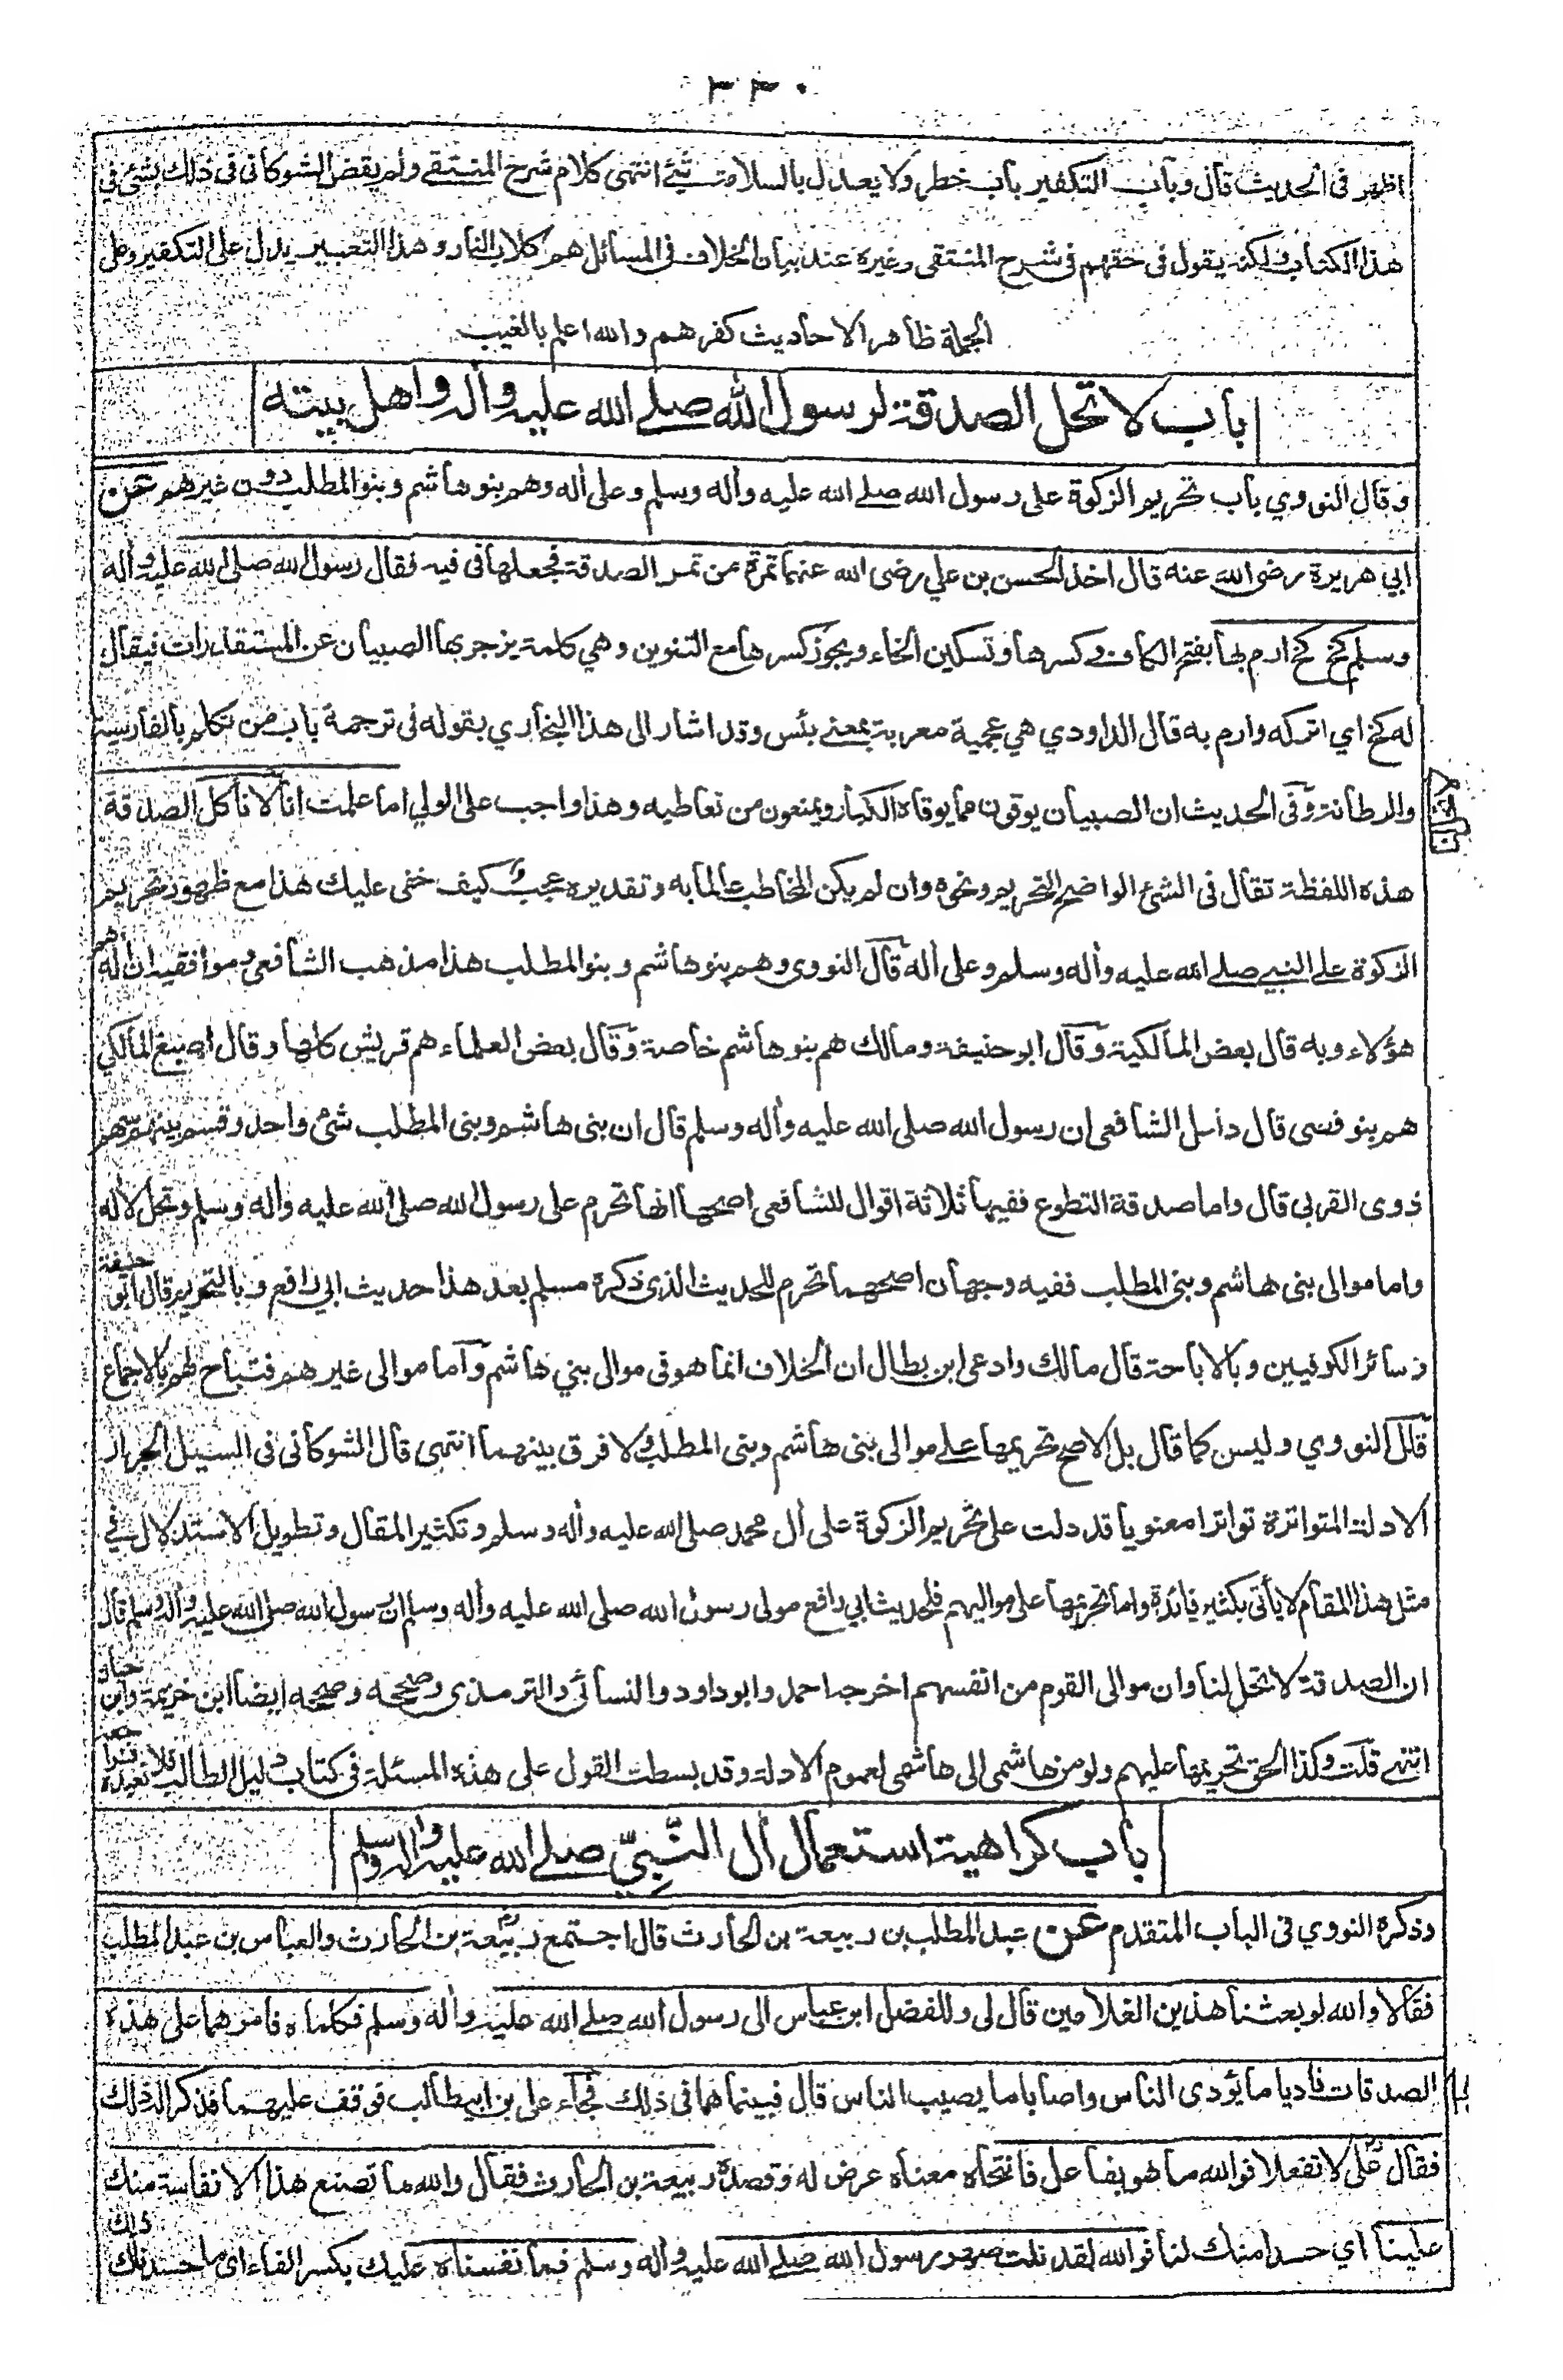 ٣٣٠
اظهر فى الحديث قال وباب التكفير باب خطر ولا يعدل بالسلامة شئ انتهى كلام شرح المنتقے ولم يقض الشوكانى فى ذلك بشئ فى
هذا الكتاب ولكنه يقول فى حقهم فى شرح المنتقى وغيره عند بيان الخلاف فى المسائل هم كلاب النار وهذا التعبير يدل على التكفير وعلى
الجملة ظاهر الاحاديث كفرهم والله اعلم بالغيب
باب لا تحل الصدقة لرسول الله صلے الله عليه واٰله واهل بيته
وقال النووي باب تحريم الزكوة على رسول الله صلے الله عليه واٰله وسلم وعلى اٰله وهم بنو هاشم وبنو المطلب دون غيرهم عن
ابي هريرة رضى الله عنه قال اخذ الحسن بن علي رضى الله عنهما تمرة من تمر الصدقة فجعلها فى فيه فقال رسول الله صلى الله عليه واٰله
وسلم كخ كخ ارم بها بفتح الكاف وكسرها وتسكين الخاء ويجوز كسرها مع التنوين وهي كلمة يزجر بها الصبيان عن المستقذرات فيقال
له كخ اي اتركه وارم به قال الداودي هي عجمية معربة بمعنے بئس وقد اشار الى هذا البخاري بقوله فى ترجمة باب من تكلم بالفارسية
والرطانة وفى الحديث ان الصبيان يوقون مما يوقاه الكبار ويمنعون من تعاطيه وهذا واجب على الولي اما علمت انا لا نأكل الصدقة
هذه اللفظة تقال فى الشئ الواضح التحريم ونحوه وان لم يكن المخاطب عالما به وتقديره عجب كيف خفى عليك هذا مع ظهور تحريم
الزكوة على النبے صلے الله عليه واٰله وسلم وعلى اٰله قال النووى وهم بنو هاشم وبنو المطلب هذا مذهب الشافعى وموافقيه ان اٰله هم
هؤلاء وبه قال بعض المالكية وقال ابو حنيفة ومالك هم بنو هاشم خاصة وقال بعض العلماء هم قريش كلها وقال اصبغ المالكي
هم بنو قصى قال دليل الشافعى ان رسول الله صلى الله عليه واٰله وسلم قال ان بنى هاشم وبنى المطلب شئ واحد وقسم بينهم سهم
ذوى القربى قال واما صدقة التطوع ففيها ثلاثة اقوال للشافعى اصحها انها تحرم على رسول الله صلى الله عليه واٰله وسلم وتحل لاٰله
واما موالى بنى هاشم وبنى المطلب ففيه وجهان اصحهما تحرم للحديث الذى ذكره مسلم بعد هذا حديث ابي رافع وبالتحريم قال ابو حنيفة
وسائر الكوفيين وبالاباحة قال مالك وادعى ابن بطال ان الخلاف انما هو فى موالى بني هاشم واما موالى غيرهم فتباح لهم بالاجماع
قال النووي وليس كما قال بل الاصح تحريمها على موالى بنى هاشم وبنى المطلب ولا فرق بينهما انتهى قال الشوكانى فى السيل الجرار
الادلة المتواترة تواترا معنويا قد دلت على تحريم الزكوة على اٰل محمد صلى الله عليه واٰله وسلم وتكثير المقال وتطويل الاستدلال فى
مثل هذا المقام لا يأتى بكثير فائدة واما تحريمها على مواليهم فلحديث ابي رافع مولى رسول الله صلى الله عليه واٰله وسلم ان رسول الله صلى الله عليه واٰله وسلم قال
ان الصدقة لا تحل لنا وان موالى القوم من انفسهم اخرجه احمد وابو داود والنسائى والترمذى وصححه وصححه ايضا ابن خزيمة وابن حبان
انتهے قلت وكذا الحق تحريمها عليهم ولو من هاشمى الى هاشمى لعموم الادلة وقد بسطت القول على هذه المسئلة فى كتاب دليل الطالب فلا نعيده
باب كراهية استعمال اٰل النَّبِيِّ صلے الله عليه واٰله وسلم
وذكره النووي فى الباب المتقدم عن عبد المطلب بن ربيعة بن الحارث قال اجتمع ربيعة بن الحارث والعباس بن عبد المطلب
فقالا والله لو بعثنا هذين الغلامين قال لى وللفضل ابن عباس الى رسول الله صلے الله عليه واٰله وسلم فكلماه فامرهما على هذه
الصدقات فاديا ما يؤدى الناس واصابا ما يصيب الناس قال فبينما هما فى ذلك فجاء على بن ابيطالب فوقف عليهما فذكرا له ذلك
فقال على لا تفعلا فوالله ما هو بفاعل فانتحاه معناه عرض له وقصده ربيعة بن الحارث فقال والله ما تصنع هذا الا نفاسة منك
علينا اي حسدا منك لنا فوالله لقد نلت صهر رسول الله صلے الله عليه واٰله وسلم فما نفسناه عليك بكسر الفاء اى ما حسدناك ذلك